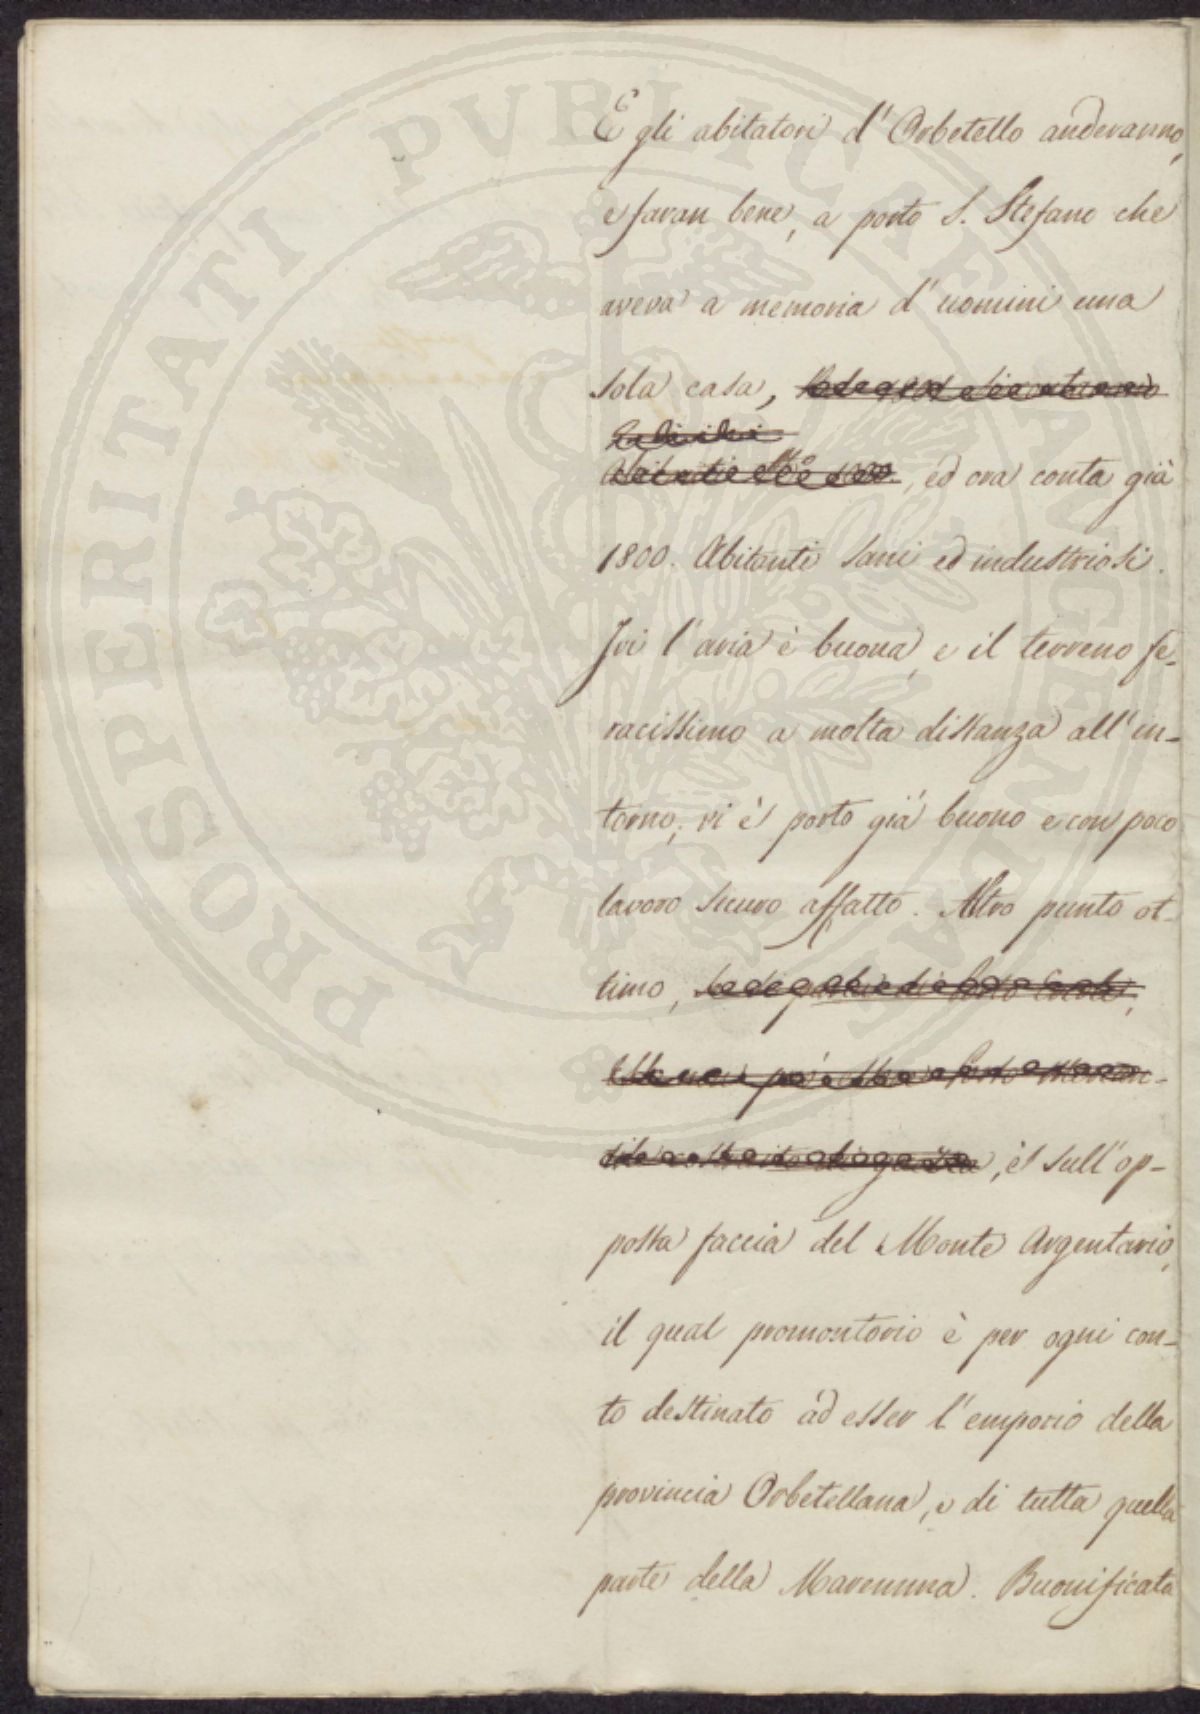 E gli abitatori d' Orbetello anderanno,
e faran bene, a porto S. Stefano che
aveva a memoria d' uomini una
sola casa,
, ed ora conta già
1800. Abitanti sani ed industriosi.
Ivi l' aria è buona, e il terreno fe-
racissimo a molta distanza all' in-
torno; vi è porto già buono e con poco
lavoro sicuro affatto. Altro punto ot-
timo,
, è sull' op-
posta faccia del Monte Argentario,
il qual promontorio è per ogni con-
to destinato ad esser l' emporio della
provincia Orbetellana, e di tutta quella
parte della Maremma. Buonificata
PROSPERITATI PVBLICAE AVGENDAE